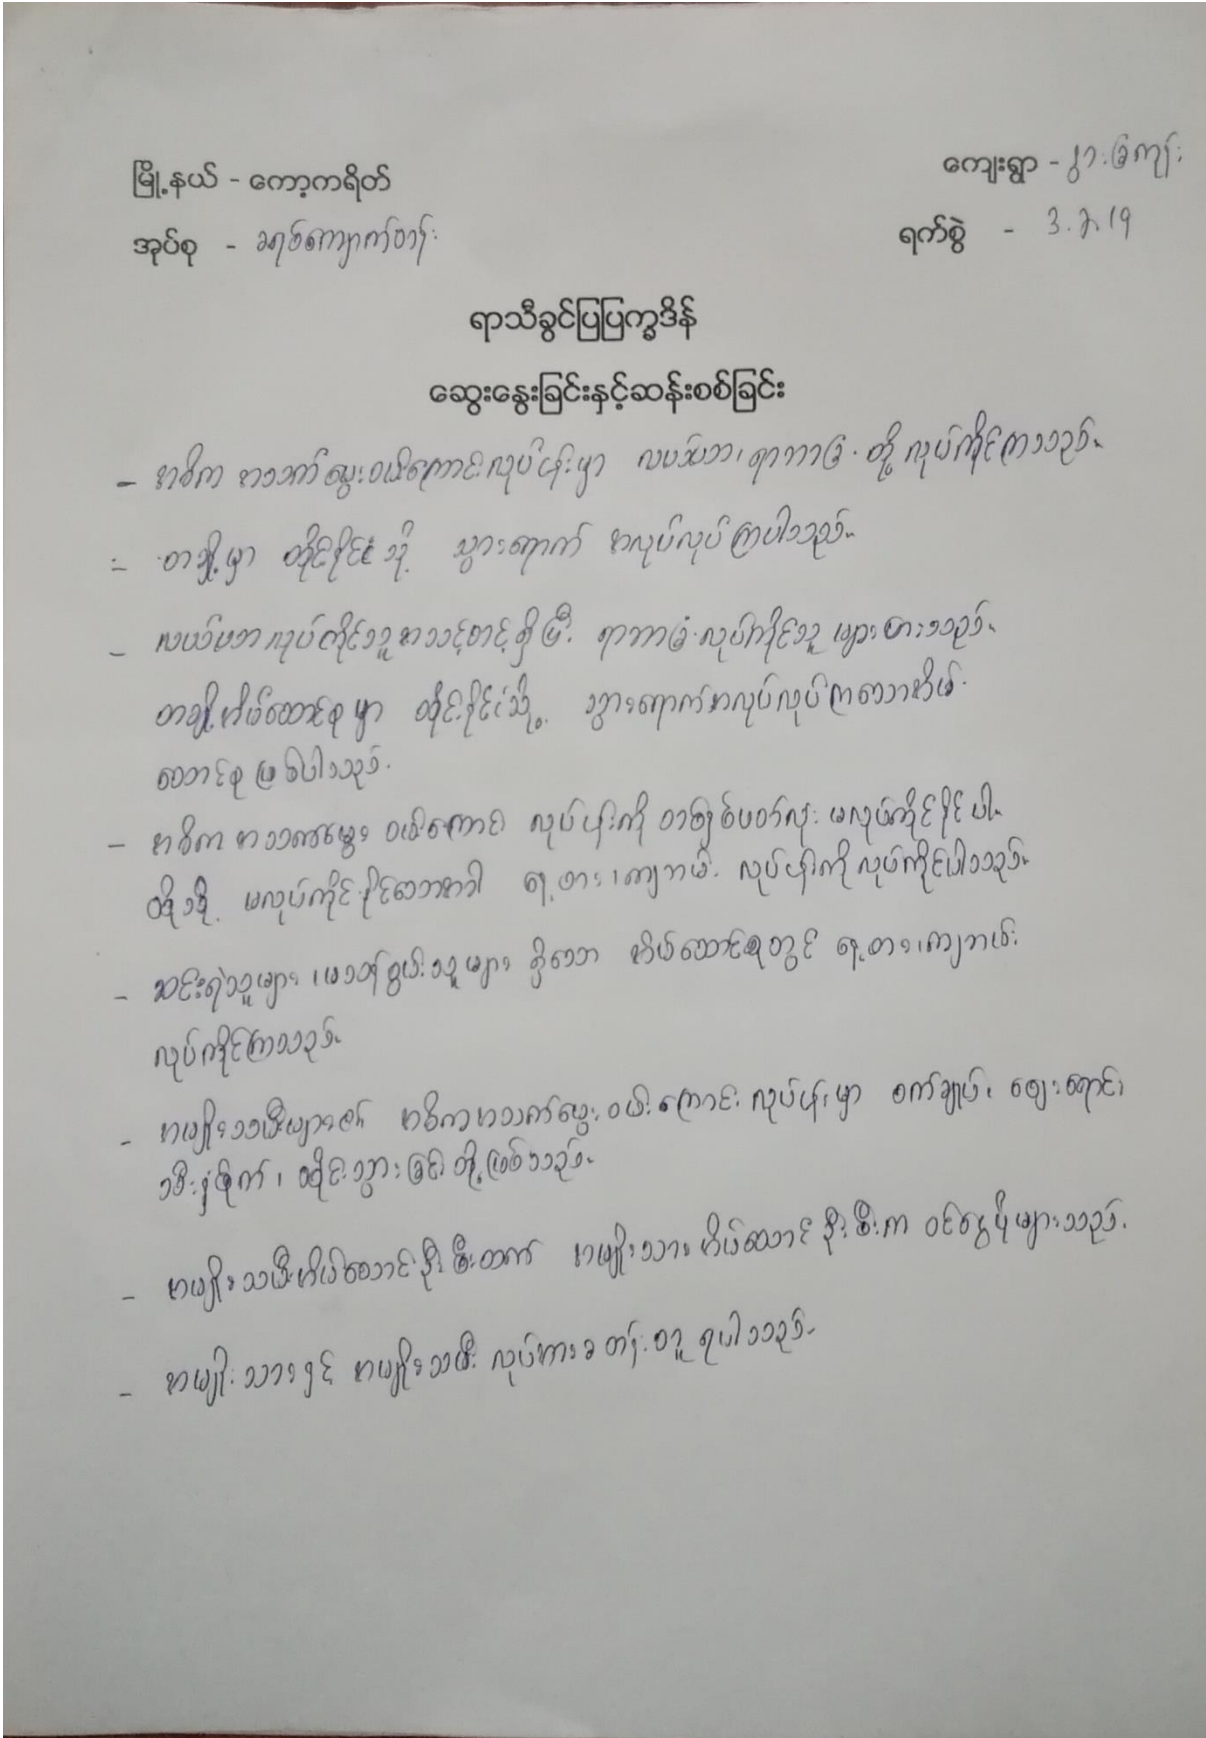 မြို့နယ် - ကော့ကရိတ်
ကျေးရွာ - နွားခြံကုန်း
အုပ်စု - ခရစ်ကျောက်တန်း
ရက်စွဲ - 3.2.19
ရာသီခွင်ပြပြက္ခဒိန်
ဆွေးနွေးခြင်းနှင့်ဆန်းစစ်ခြင်း
- အဓိက အသက်မွေးဝမ်းကျောင်းလုပ်ငန်းမှာ လယ်ယာ၊ ရာဘာခြံ တို့ လုပ်ကိုင်ကြသည်။
- တချို့မှာ ထိုင်းနိုင်ငံသို့ သွားရောက် အလုပ်လုပ်ကြပါသည်။
- လယ်ယာလုပ်ကိုင်သူအသင့်တင့်ရှိပြီး ရာဘာခြံလုပ်ကိုင်သူ များစားသည်။
တချို့အိမ်ထောင်စုမှာ ထိုင်းနိုင်ငံသို့ သွားရောက်အလုပ်လုပ်ကြသောအိမ်
ထောင်စုဖြစ်ပါသည်။
- အဓိက အသက်မွေး ဝမ်းကျောင်း လုပ်ငန်းကို တစ်နှစ်ပတ်လုံး မလုပ်ကိုင်နိုင်ပါ။
ထိုသို့ မလုပ်ကိုင်နိုင်သောအခါ နေ့စား၊ ကျဘမ်း လုပ်ငန်းကို လုပ်ကိုင်ပါသည်။
- ဆင်းရဲသူများ၊ မသန်စွမ်းသူများ ရှိသော အိမ်ထောင်စုတွင် နေ့စား၊ ကျဘမ်း
လုပ်ကိုင်ကြသည်။
- အမျိုးသမီးများ၏ အဓိကအသက်မွေးဝမ်းကျောင်းလုပ်ငန်းမှာ စက်ချုပ်၊ ဈေးရောင်း၊
သီးနှံစိုက်၊ ထိုင်းသွားခြင်းတို့ဖြစ်သည်။
- အမျိုးသမီးအိမ်ထောင်ဦးစီးထက် အမျိုးသားအိမ်ထောင်ဦးစီးက ဝင်ငွေပိုများသည်။
- အမျိုးသားနှင့် အမျိုးသမီး လုပ်အားခ တန်းတူ ရပါသည်။